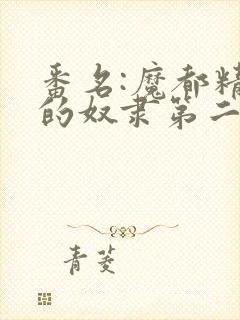 番名:魔都精
的奴隶第二
青菱